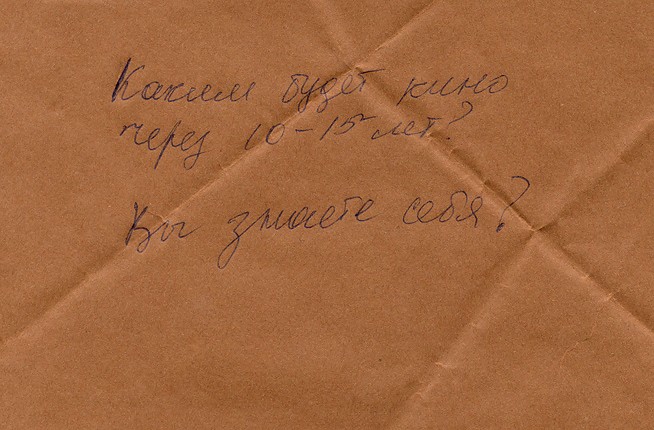 Каким будет кино
через 10-15 лет?
Вы знаете себя?